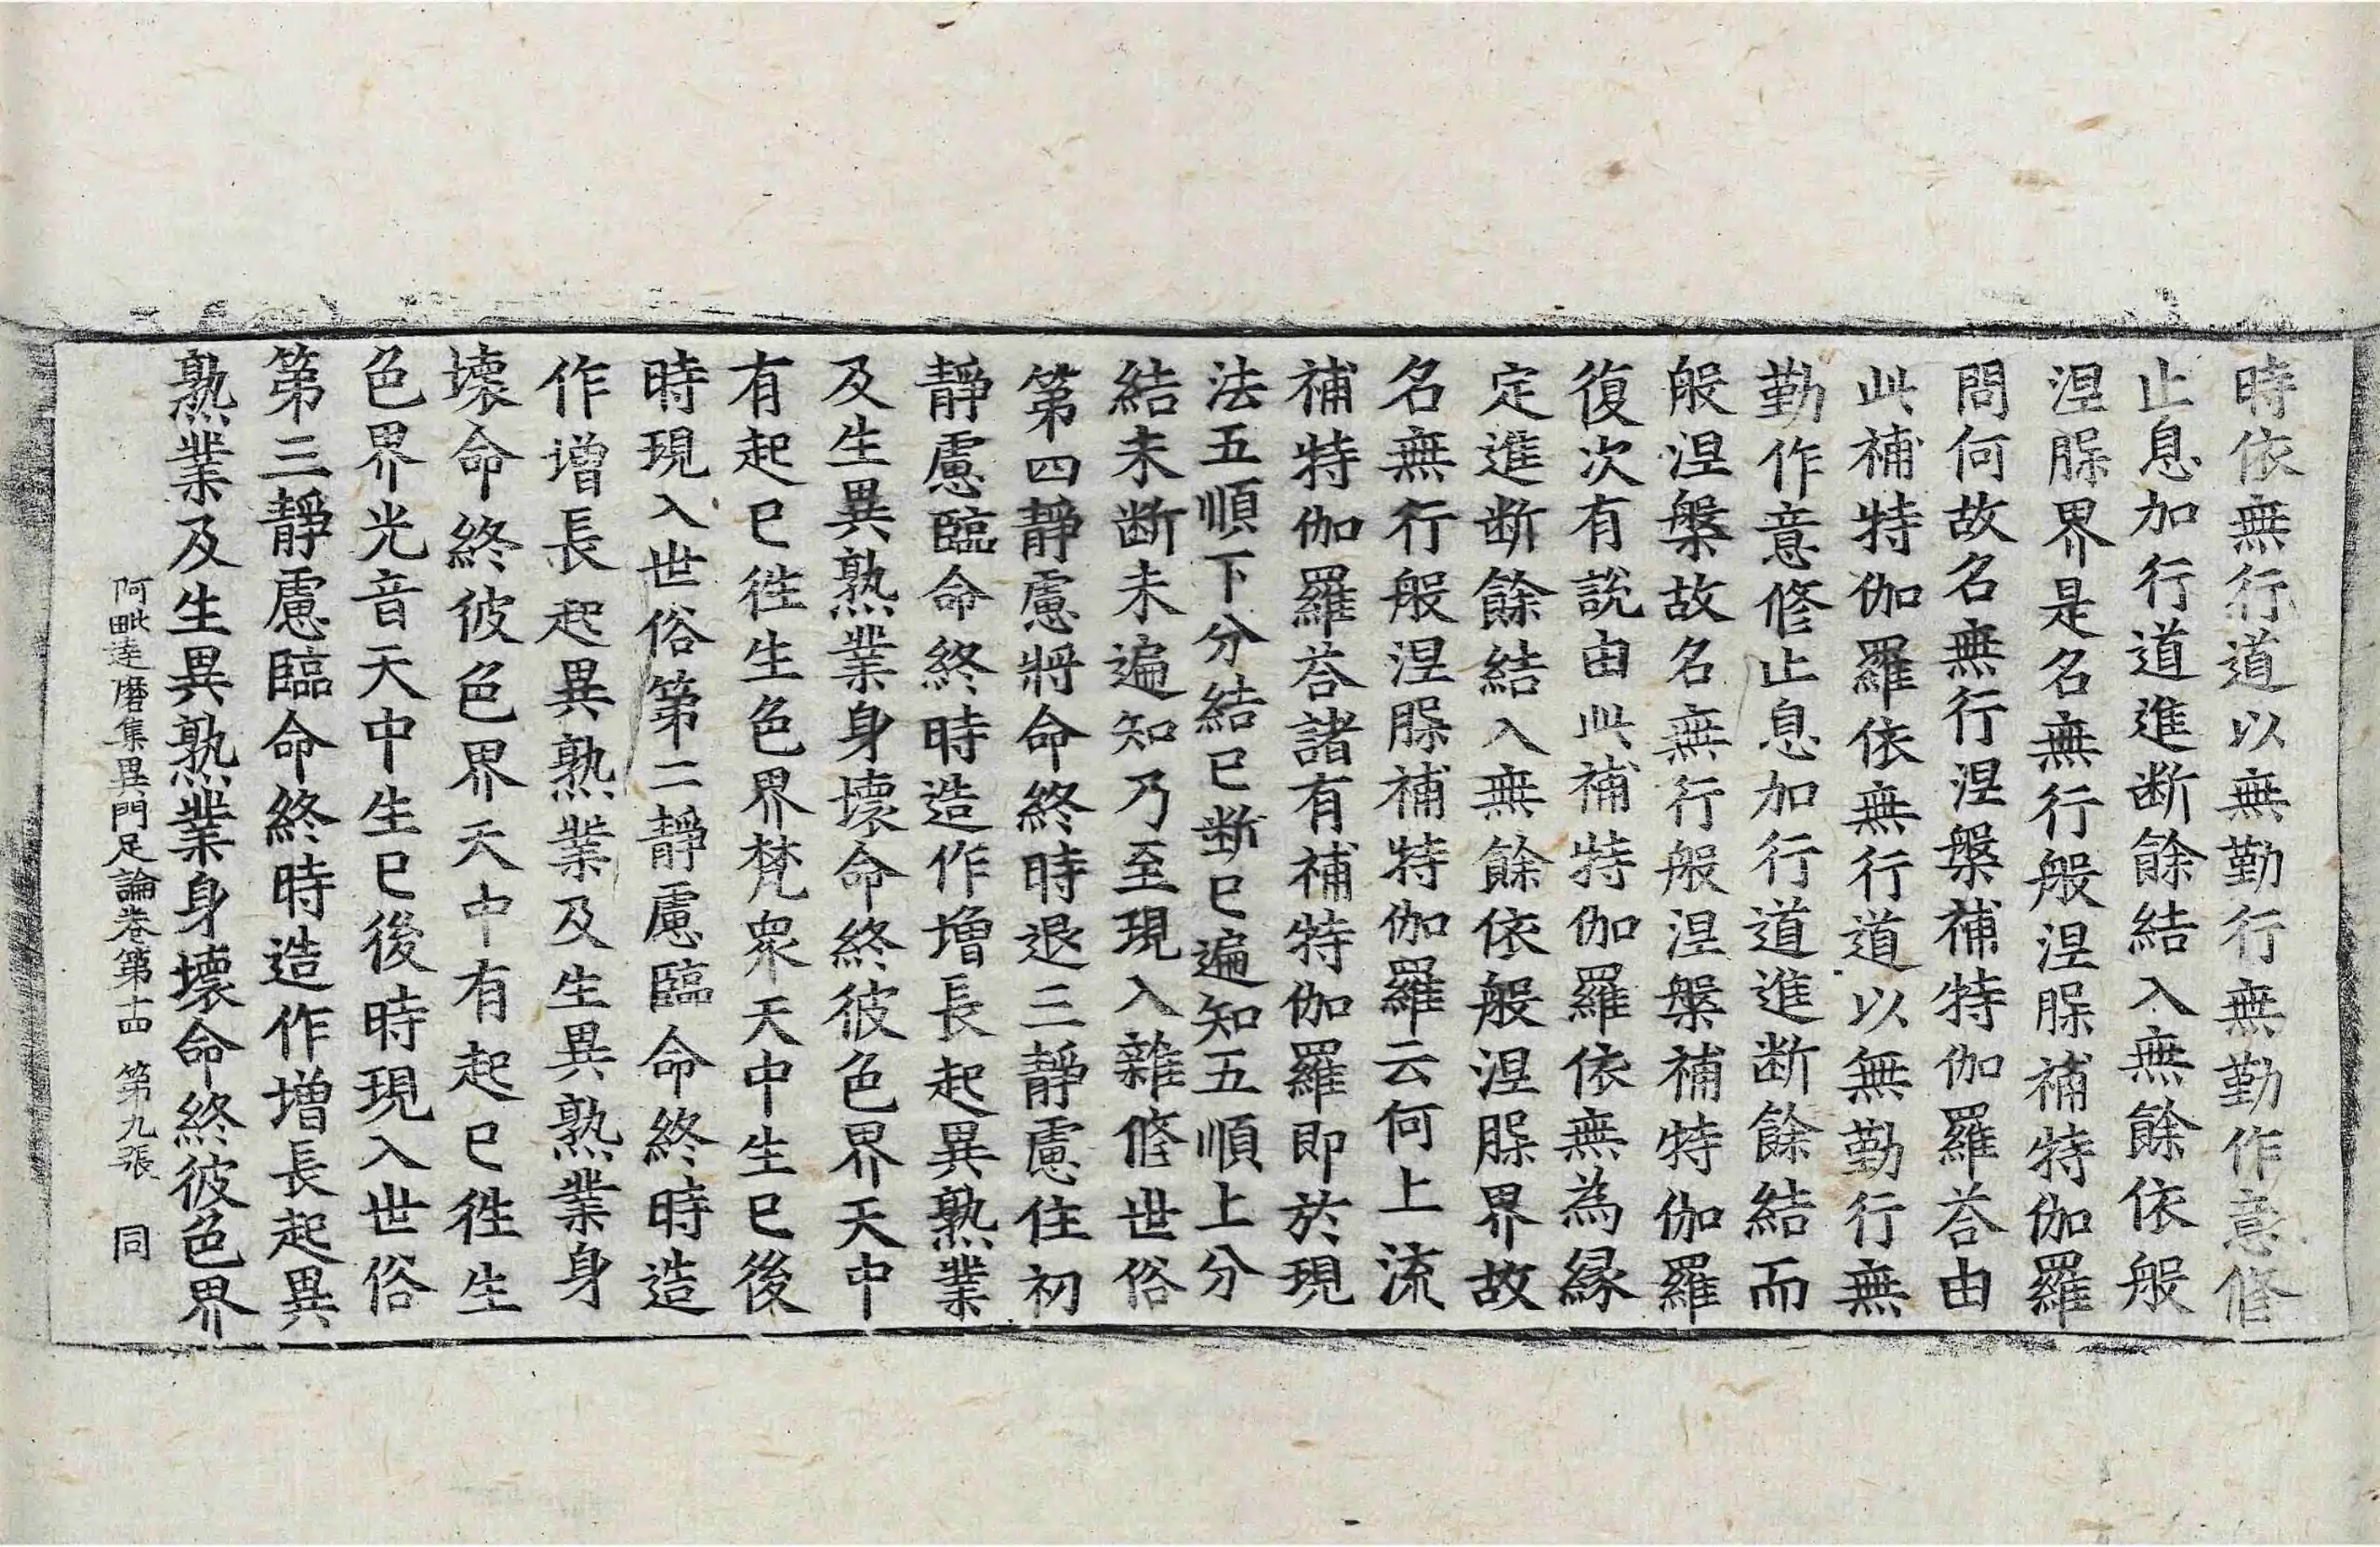 時依無行道以無勤行無勤作意修
止息加行道進断餘結入無餘依般
涅腬界是名無行般涅腬補特伽羅
問何故名無行涅槃補特伽羅荅由
此補特伽羅依無行道以無勤行無
勤作意修止息加行道進断餘結而
般涅槃故名無行般涅槃補特伽羅
復次有說由此補特伽羅依無為縁
定進断餘結入無餘依般涅腬界故
名無行般涅腬補特伽羅云何上流
補特伽羅荅諸有補特伽羅即於現
法五順下分結已断已遍知五順上分
結未断未遍知乃至現入雜修世俗
第四靜慮將命終時退三靜慮住初
靜慮臨命終時造作增長起異熟業
及生異熟業身壞命終彼色界天中
有起已徃生色界梵衆天中生已後
時現入世俗第二靜慮臨命終時造
作增長起異熟業及生異熟業身
壞命終彼色界天中有起已徃生
色界光音天中生已後時現入世俗
第三靜慮臨命終時造作增長起異
熟業及生異熟業身壞命終彼色界
阿毗達磨集異門足論卷第十四 第九張 同